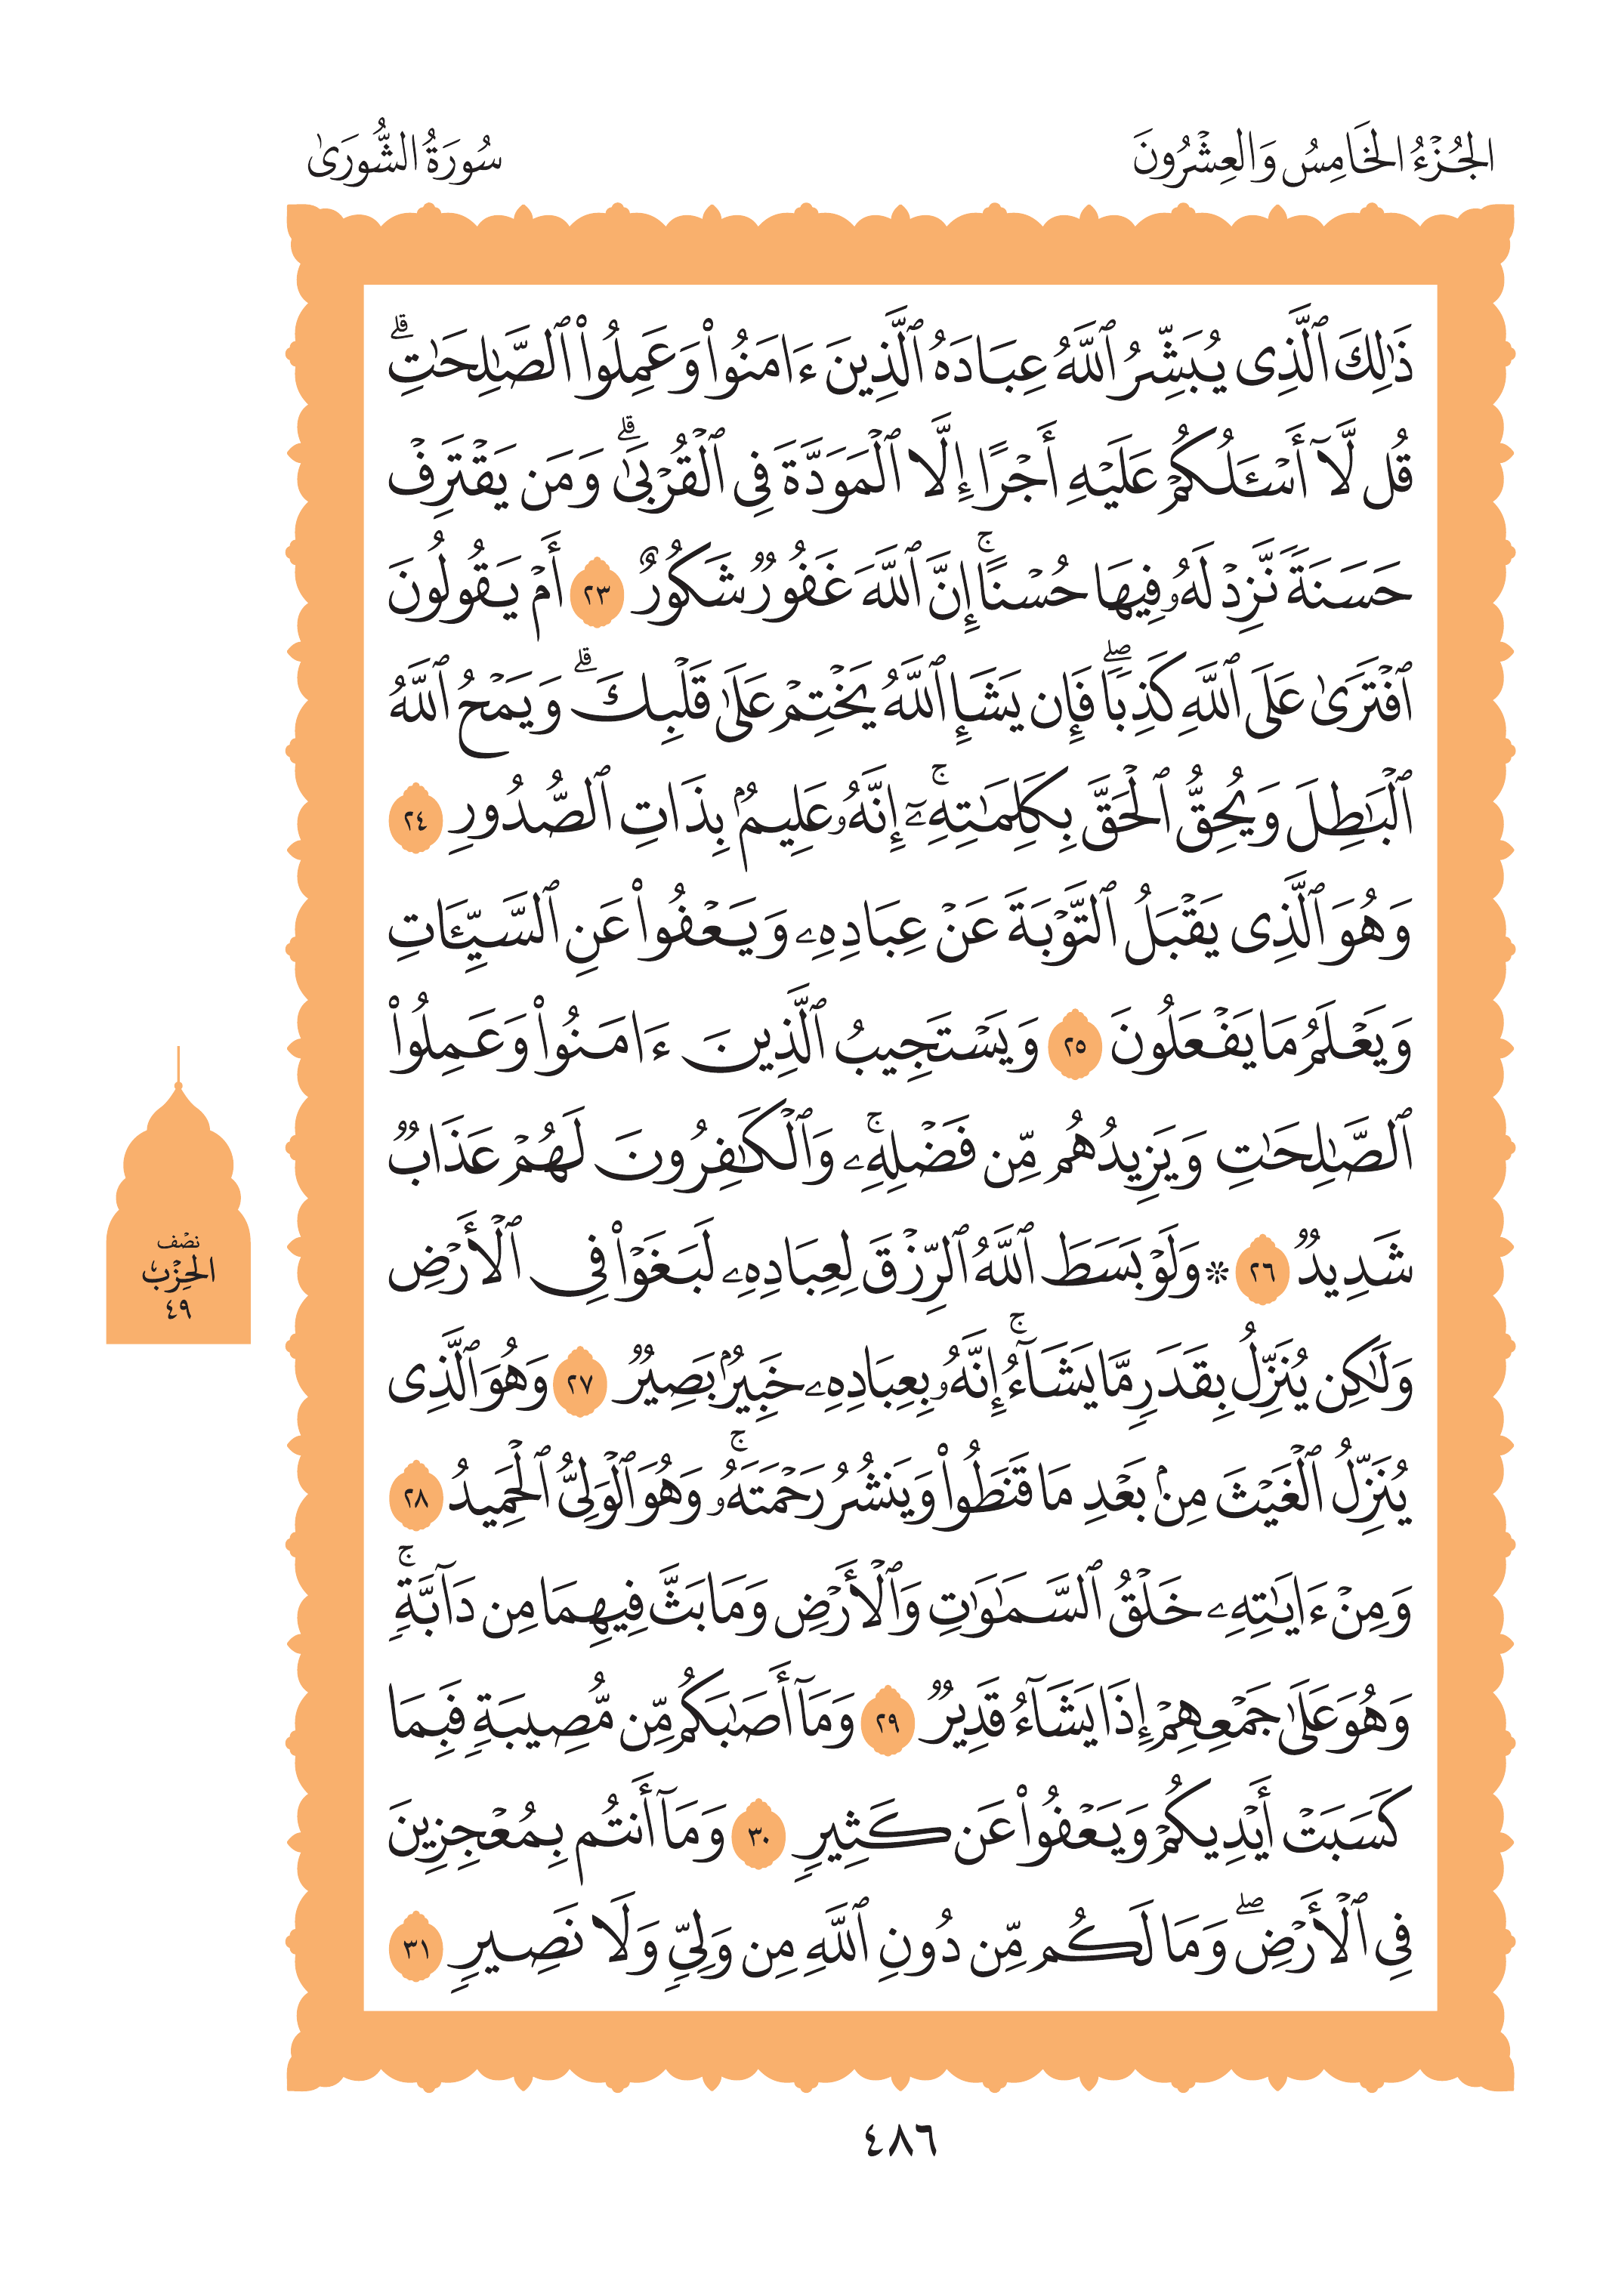 الجُزْءُ الخَامِسُ وَالعِشْرُونَ
سُورَةُ الشُّورَىٰ
ذَٰلِكَ ٱلَّذِى يُبَشِّرُ ٱللَّهُ عِبَادَهُ ٱلَّذِينَ ءَامَنُوا۟ وَعَمِلُوا۟ ٱلصَّٰلِحَٰتِۗ
قُل لَّآ أَسْـَٔلُكُمْ عَلَيْهِ أَجْرًا إِلَّا ٱلْمَوَدَّةَ فِى ٱلْقُرْبَىٰۗ وَمَن يَقْتَرِفْ
حَسَنَةً نَّزِدْ لَهُۥ فِيهَا حُسْنًاۚ إِنَّ ٱللَّهَ غَفُورٌ شَكُورٌ ٢٣ أَمْ يَقُولُونَ
ٱفْتَرَىٰ عَلَى ٱللَّهِ كَذِبًاۖ فَإِن يَشَإِ ٱللَّهُ يَخْتِمْ عَلَىٰ قَلْبِكَۗ وَيَمْحُ ٱللَّهُ
ٱلْبَٰطِلَ وَيُحِقُّ ٱلْحَقَّ بِكَلِمَٰتِهِۦٓۚ إِنَّهُۥ عَلِيمٌۢ بِذَاتِ ٱلصُّدُورِ ٢٤
وَهُوَ ٱلَّذِى يَقْبَلُ ٱلتَّوْبَةَ عَنْ عِبَادِهِۦ وَيَعْفُوا۟ عَنِ ٱلسَّيِّـَٔاتِ
وَيَعْلَمُ مَا يَفْعَلُونَ ٢٥ وَيَسْتَجِيبُ ٱلَّذِينَ ءَامَنُوا۟ وَعَمِلُوا۟
ٱلصَّٰلِحَٰتِ وَيَزِيدُهُم مِّن فَضْلِهِۦۚ وَٱلْكَٰفِرُونَ لَهُمْ عَذَابٌ
شَدِيدٌ ٢٦ ۞ وَلَوْ بَسَطَ ٱللَّهُ ٱلرِّزْقَ لِعِبَادِهِۦ لَبَغَوْا۟ فِى ٱلْأَرْضِ
وَلَٰكِن يُنَزِّلُ بِقَدَرٍ مَّا يَشَآءُۚ إِنَّهُۥ بِعِبَادِهِۦ خَبِيرٌۢ بَصِيرٌ ٢٧ وَهُوَ ٱلَّذِى
يُنَزِّلُ ٱلْغَيْثَ مِنۢ بَعْدِ مَا قَنَطُوا۟ وَيَنشُرُ رَحْمَتَهُۥۚ وَهُوَ ٱلْوَلِىُّ ٱلْحَمِيدُ ٢٨
وَمِنْ ءَايَٰتِهِۦ خَلْقُ ٱلسَّمَٰوَٰتِ وَٱلْأَرْضِ وَمَا بَثَّ فِيهِمَا مِن دَآبَّةٍۚ
وَهُوَ عَلَىٰ جَمْعِهِمْ إِذَا يَشَآءُ قَدِيرٌ ٢٩ وَمَآ أَصَٰبَكُم مِّن مُّصِيبَةٍ فَبِمَا
كَسَبَتْ أَيْدِيكُمْ وَيَعْفُوا۟ عَن كَثِيرٍ ٣٠ وَمَآ أَنتُم بِمُعْجِزِينَ
فِى ٱلْأَرْضِۖ وَمَا لَكُم مِّن دُونِ ٱللَّهِ مِن وَلِىٍّ وَلَا نَصِيرٍ ٣١
نصْف
الحِزْب
٤٩
٤٨٦